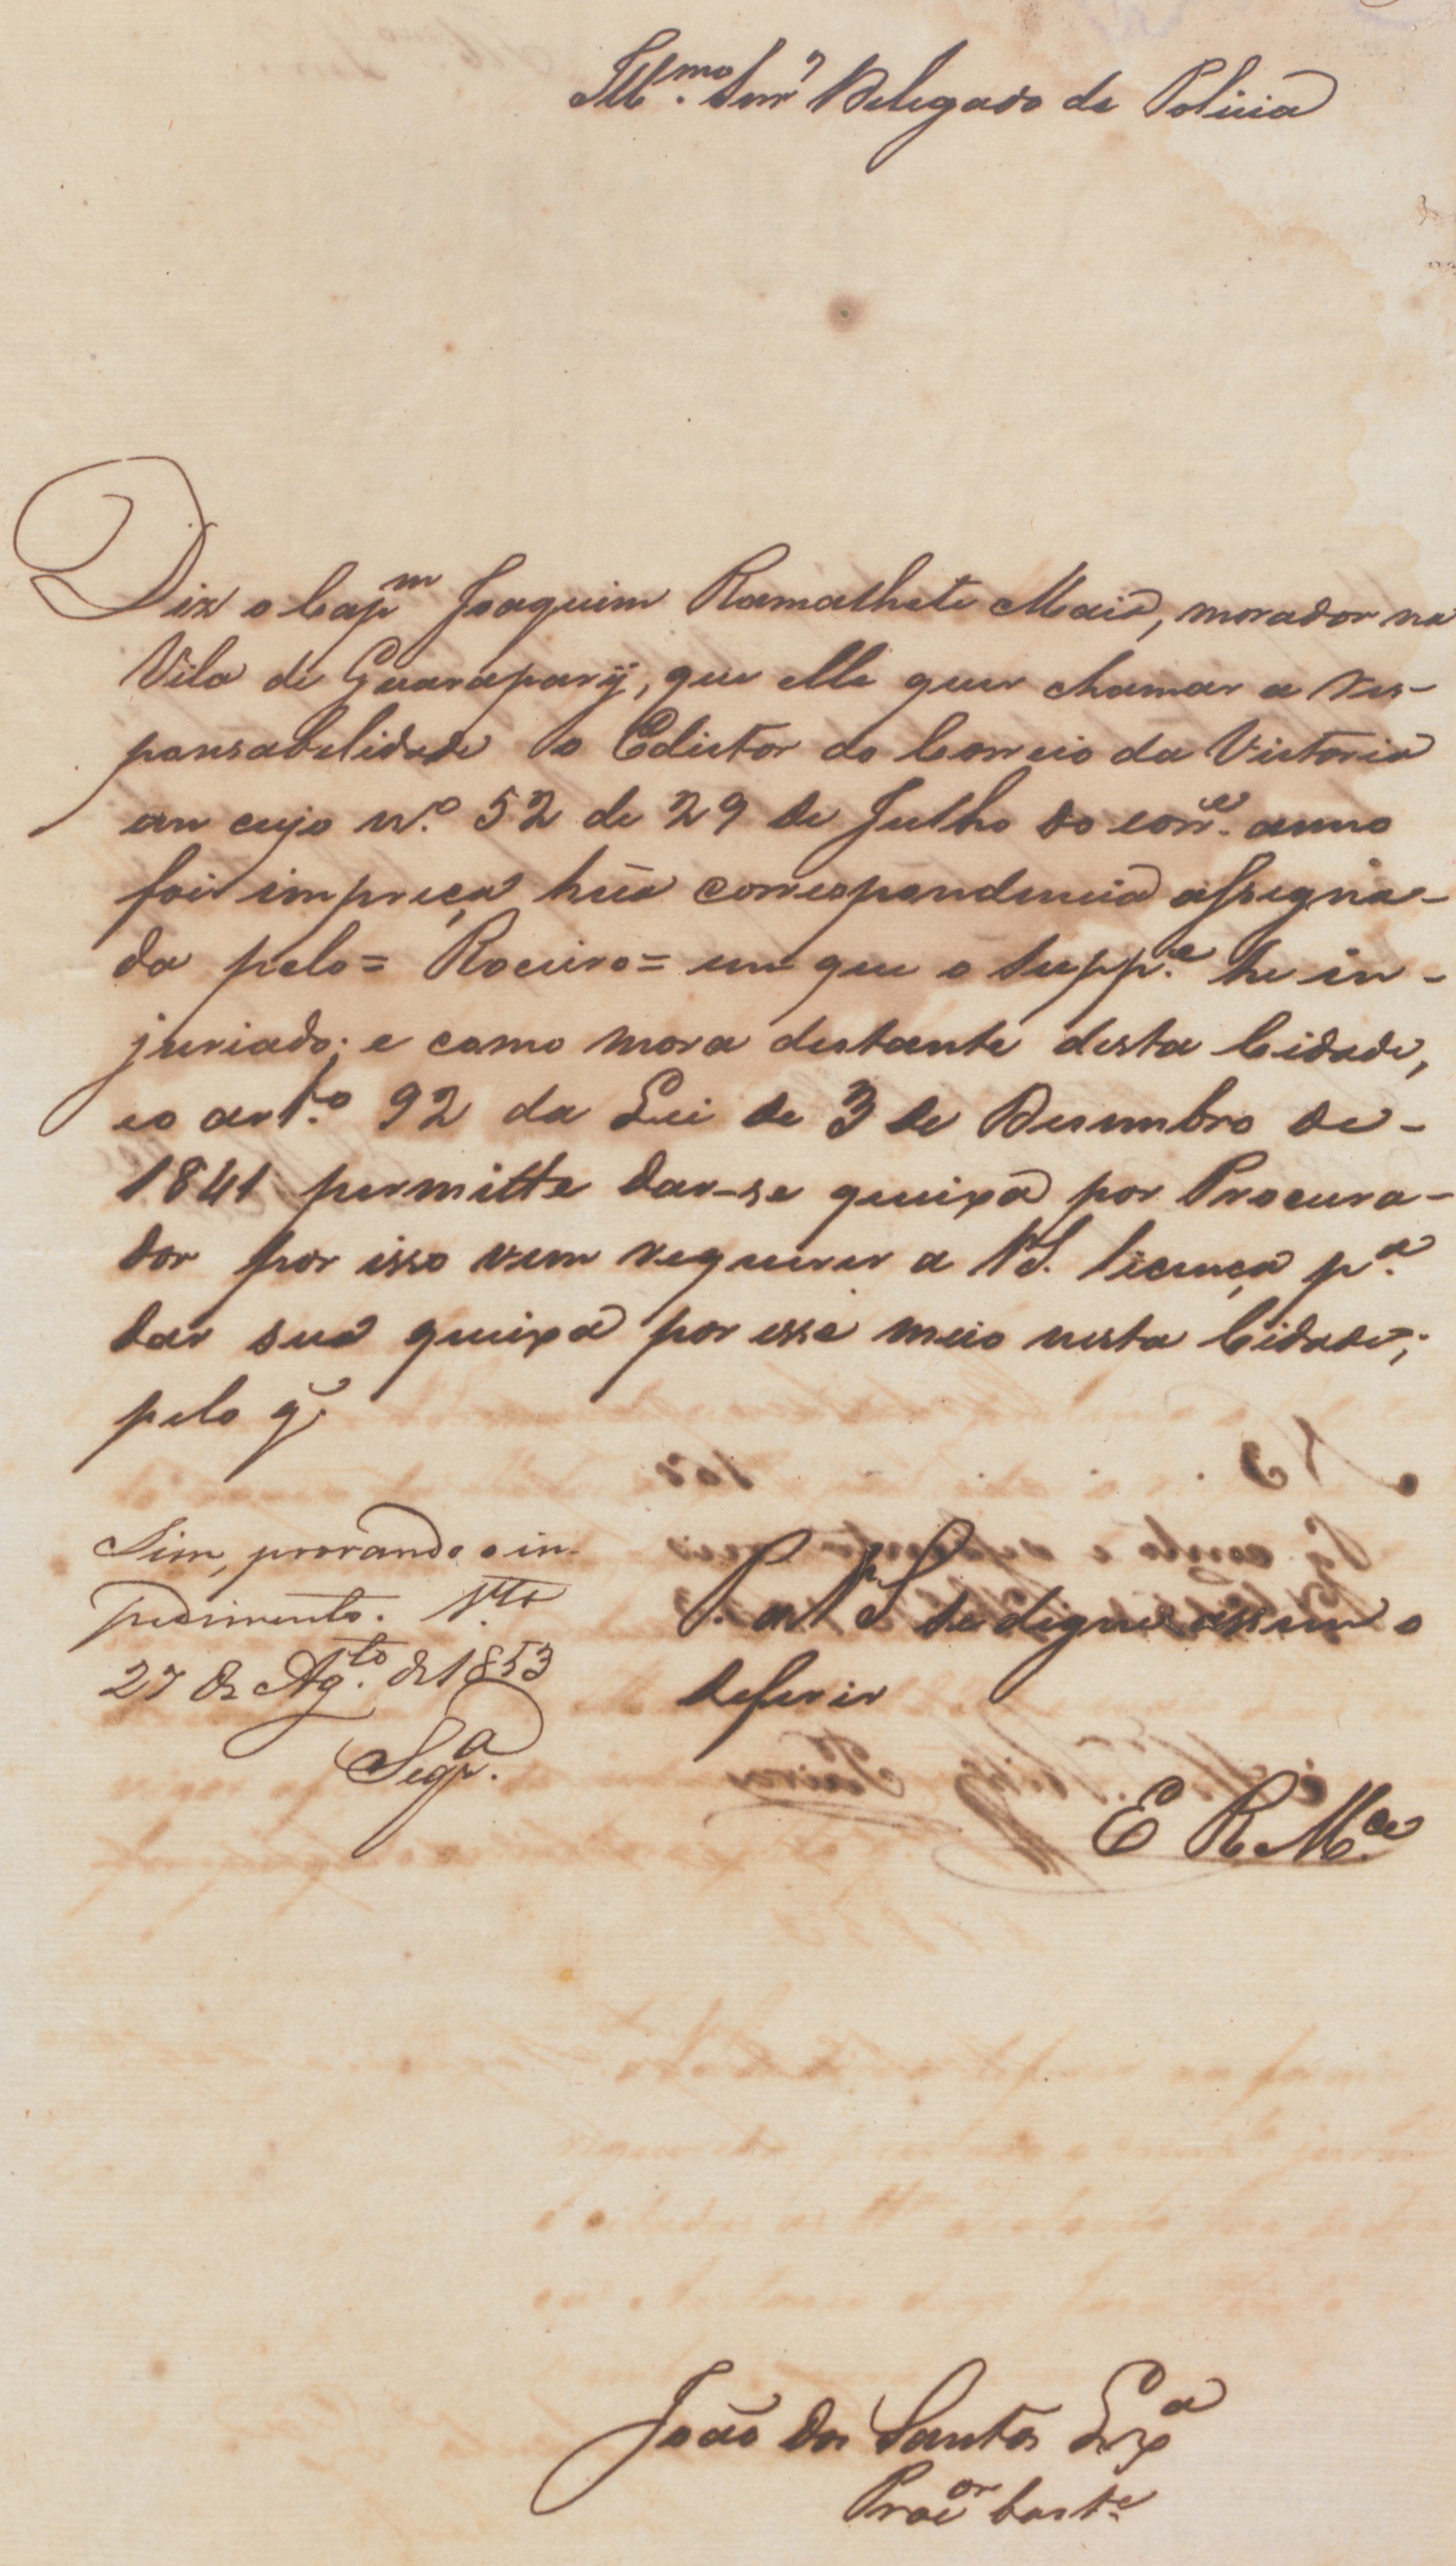 Ill.mo Snr Delegado de Policia
Diz o Capm Joaquim Ramalhete Maia, morador na
Vila de Guarapary, que elle quer chamar a res-
ponsabelidade o Edictor do Correio da Victoria
em cujo n.o 52 de 29 de Julho do corr.e anno
foi impreça hũa correspondencia assegna-
da pelo = Roceiro = em que o Supp.e he in-
juriado; e como mora destante desta Cidade,
eo art.o 92 da Lei de 3 de Desembro de-
1841 permitte dar-se queixa por Procura-
dor por isso vem requerer a V.S. licença p.a
dar sua queixa por esse meio nesta Cidade;
pelo q̃
Sim, provando o im-
pedimento. V.ta
27 de Ag.to de 1853
Seq.a
P. a V.S. se digne assim o
deferir
E R M.ce
João dos Santos
Procor bast.e